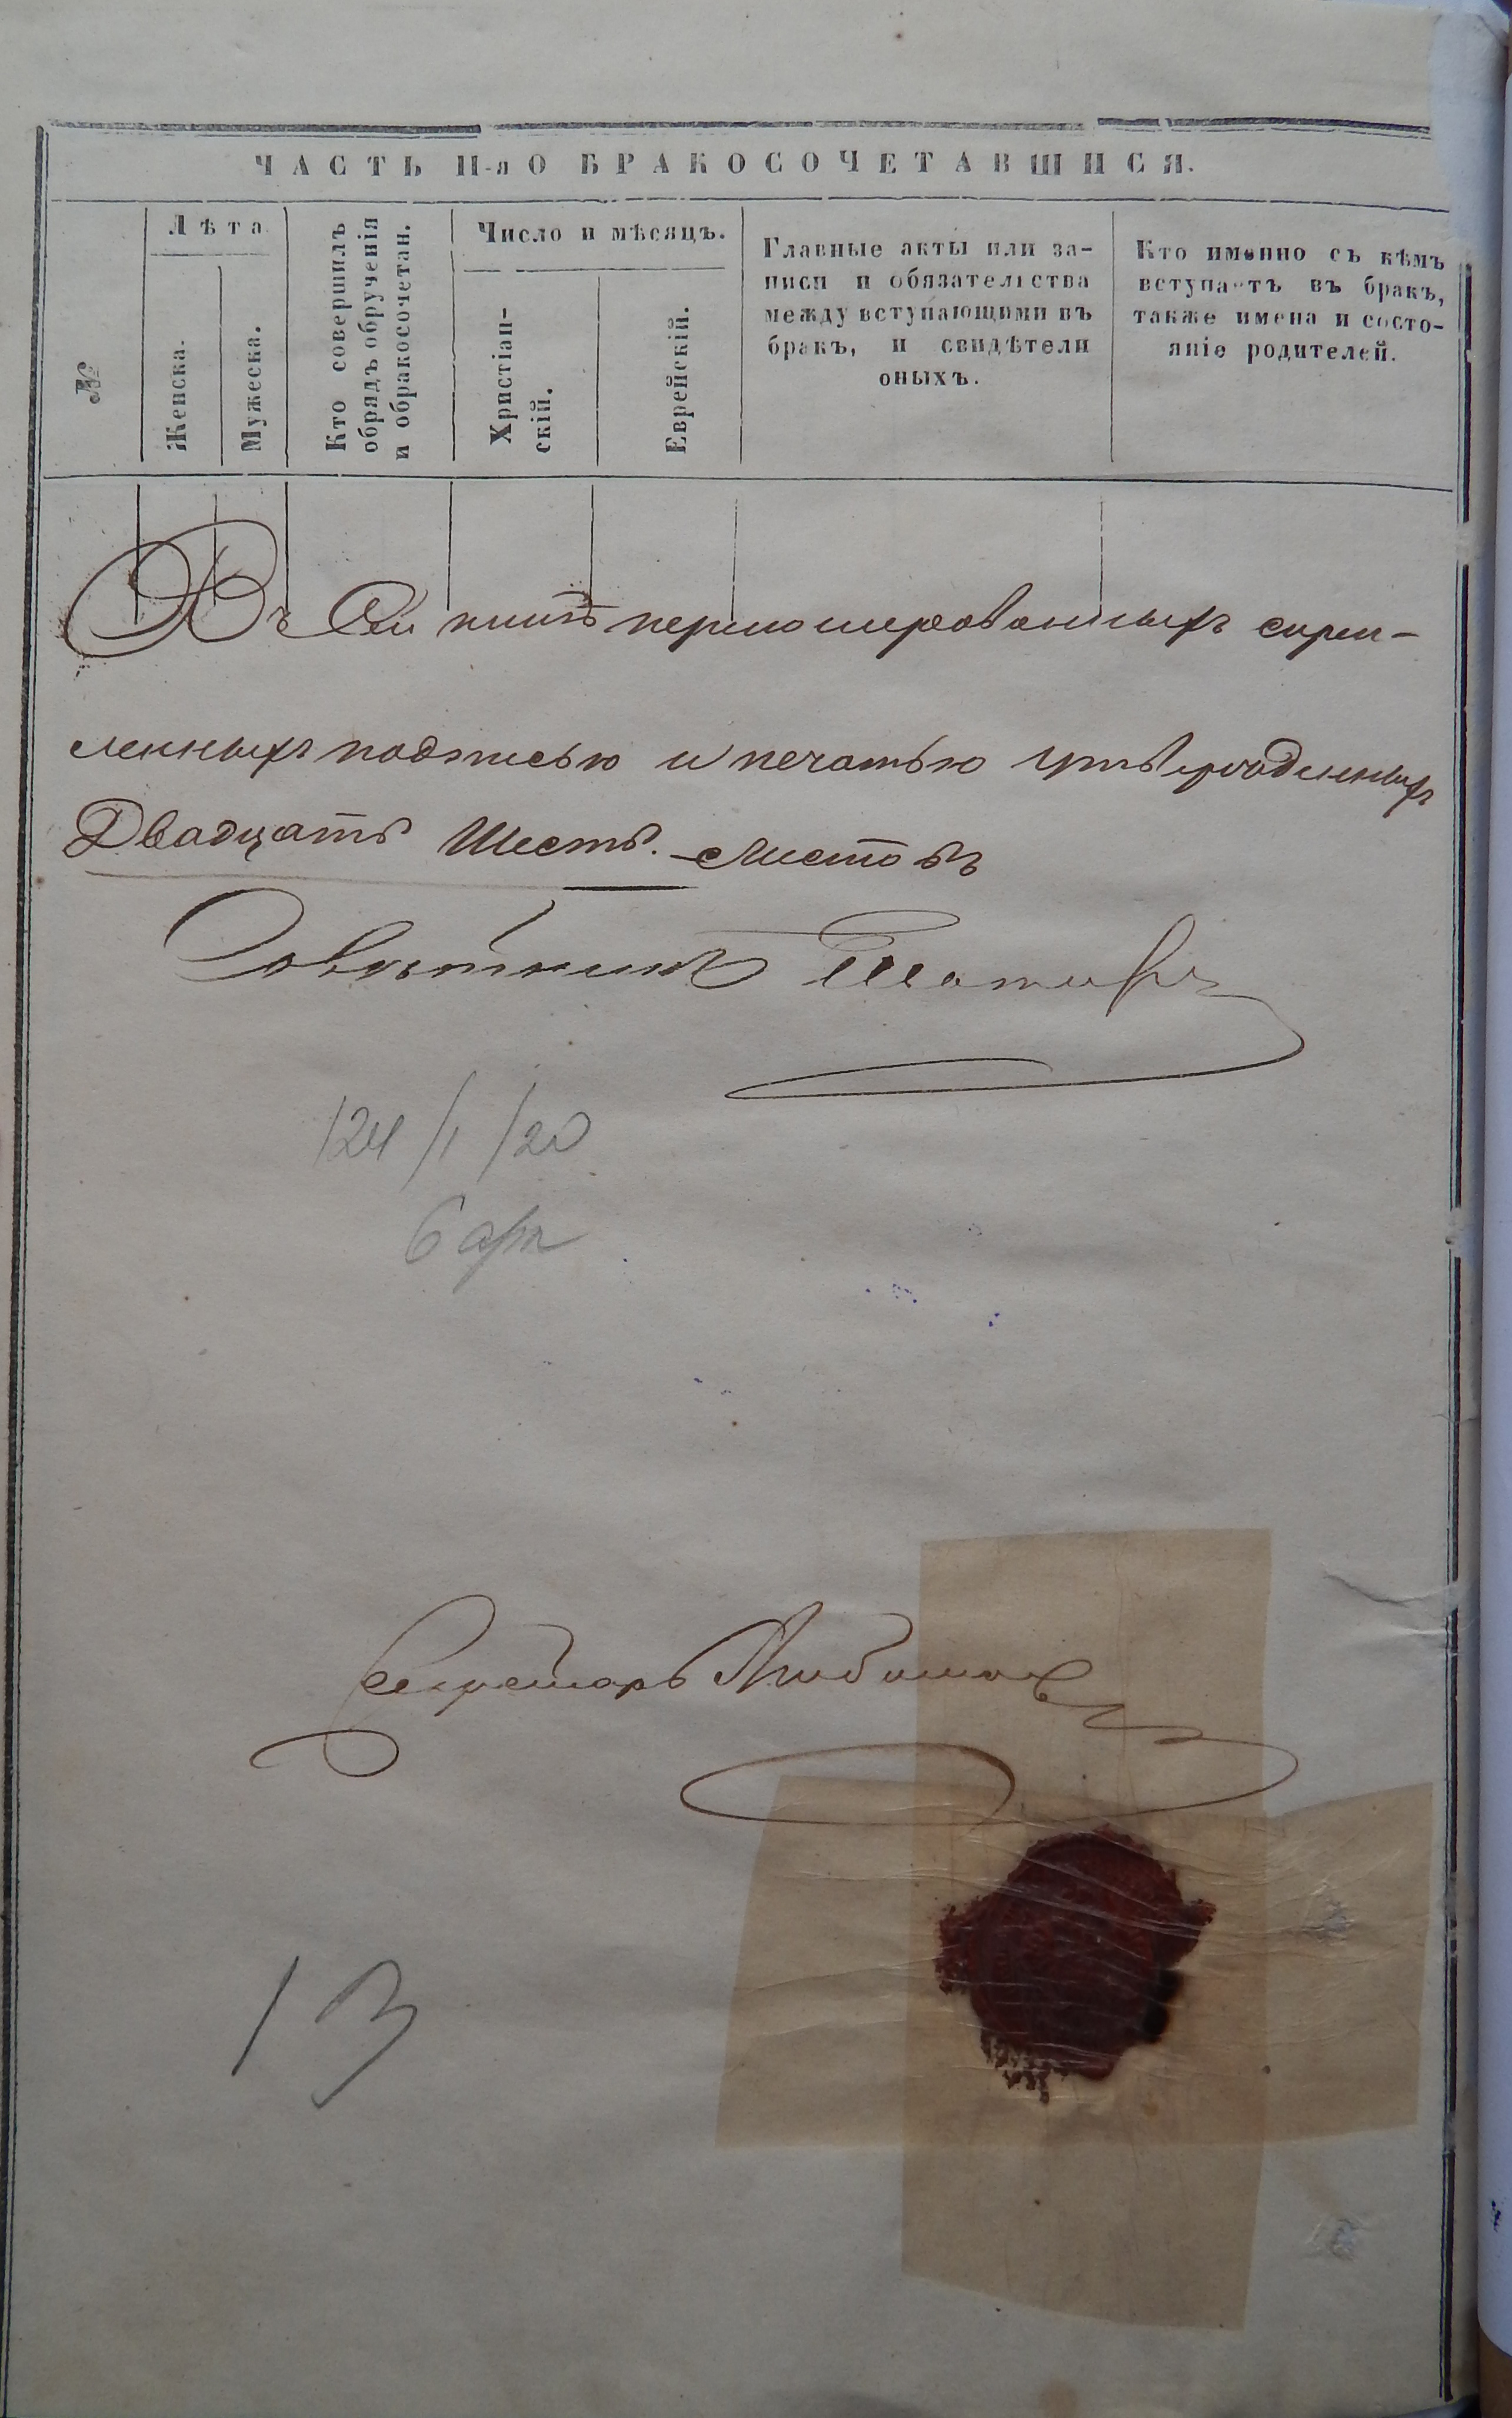 ЧАСТЬ II-я О БРАКОСОЧЕТАВШИСЯ.
№
Лѣта
Женска.
Мужеска.
Кто совершилъ
обрядъ обрученія
и обракосочетан.
Число и мѣсяцъ.
Христіан-
скій.
Еврейскій.
Главные акты или за-
писи и обязательства
между вступающими въ
бракъ, и свидѣтели
оныхъ.
Кто именно съ кѣмъ
вступаетъ въ бракъ,
также имена и состо-
яніе родителей.
Въ Сей книгѣ перешнурованныхъ скреп-
ленныхъ подписью и печатью утвержденныхъ
Двадцать Шесть. листовъ
Совѣтникъ
124/1/20
6 арк
Секретарь
13